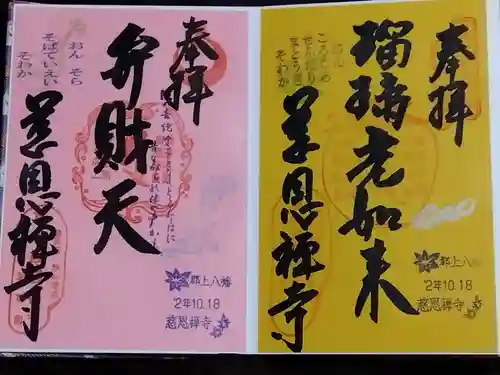 奉拝
瑠璃光如来
慈恩禅寺
おん
ころころ
せんだり
まとうぎ
そわか
郡上八幡
2年10.18
慈恩禅寺
奉拝
弁財天
慈恩禅寺
おん そら
そばていえい
そわか
郡上八幡
2年10.18
慈恩禅寺